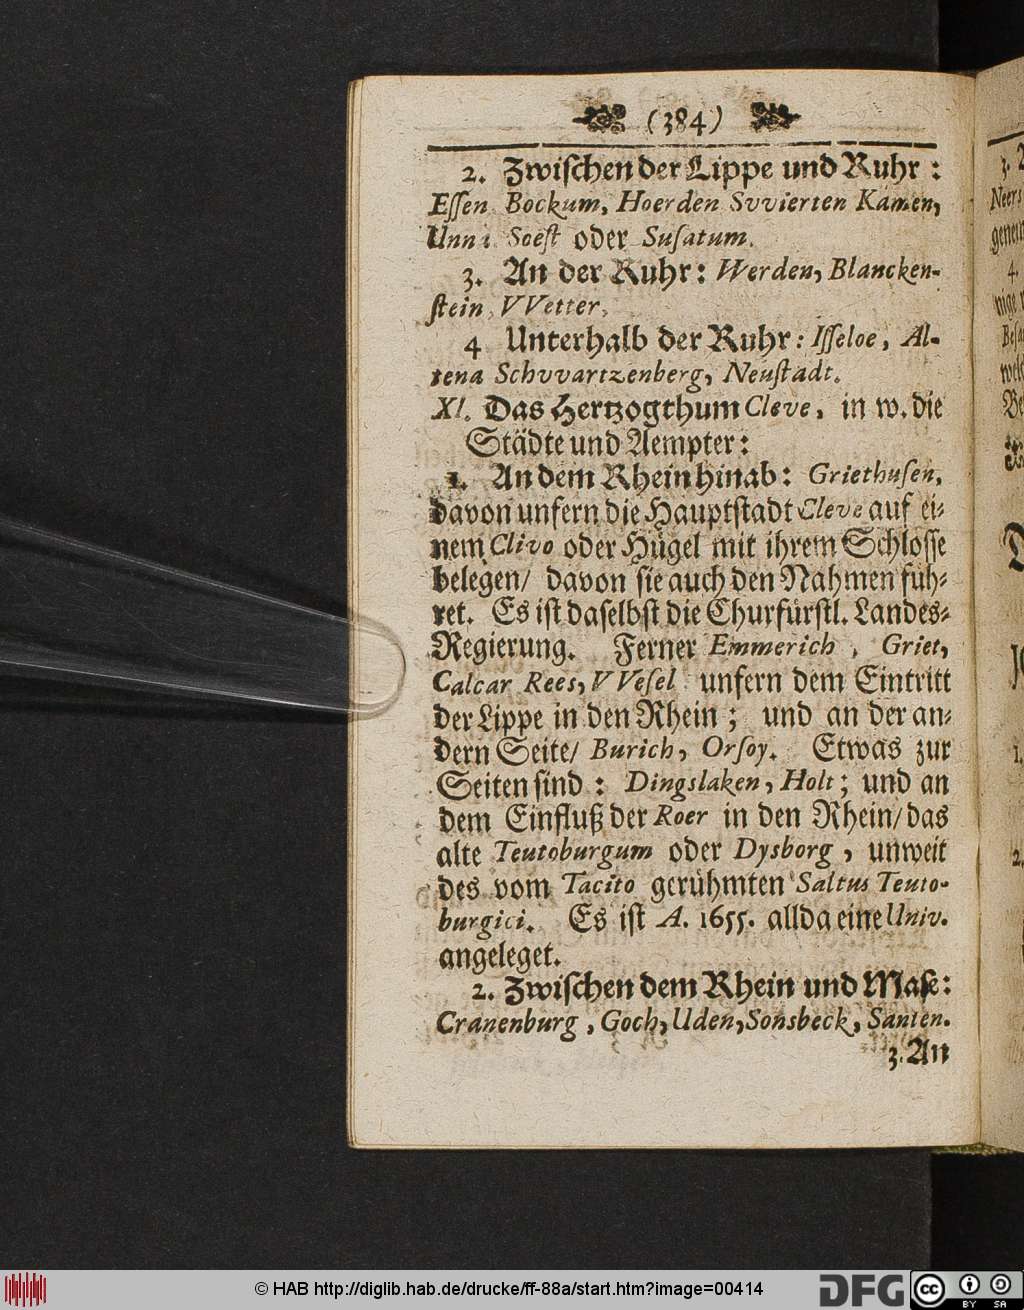 (384)
2. Zwischen der Lippe und Ruhr:
Essen Bockum, Hoerden Svvierten Kamen,
Unna Soest oder Susatum.
3. An der Ruhr: Werden, Blancken-
stein, VVetter,
4 Unterhalb der Ruhr: Isseloe, Al-
tena Schvvartzenberg, Neustadt.
XI. Das Hertzogthum Cleve, in w. die
Städte und Aempter:
1. An dem Rhein hinab: Griethusen,
davon unfern die Hauptstadt Cleve auf ei-
nem Clivo oder Hügel mit ihrem Schlosse
belegen/ davon sie auch den Nahmen füh-
ret. Es ist daselbst die Churfürstl. Landes-
Regierung. Ferner Emmerich, Griet,
Calcar Rees, VVesel unfern dem Eintritt
der Lippe in den Rhein; und an der an-
dern Seite/ Burich, Orsoy. Etwas zur
Seiten sind: Dingslaken, Holt; und an
dem Einfluß der Roer in den Rhein/ das
alte Teutoburgum oder Dysborg, unweit
des vom Tacito gerühmten Saltus Teuto-
burgici. Es ist A. 1655. allda eine Univ.
angeleget.
2. Zwischen dem Rhein und Mase:
Cranenburg, Goch, Uden, Sonsbeck, Santen.
3. An
© HAB http://diglib.hab.de/drucke/ff-88a/start.htm?image=00414
DFG
cc BY SA